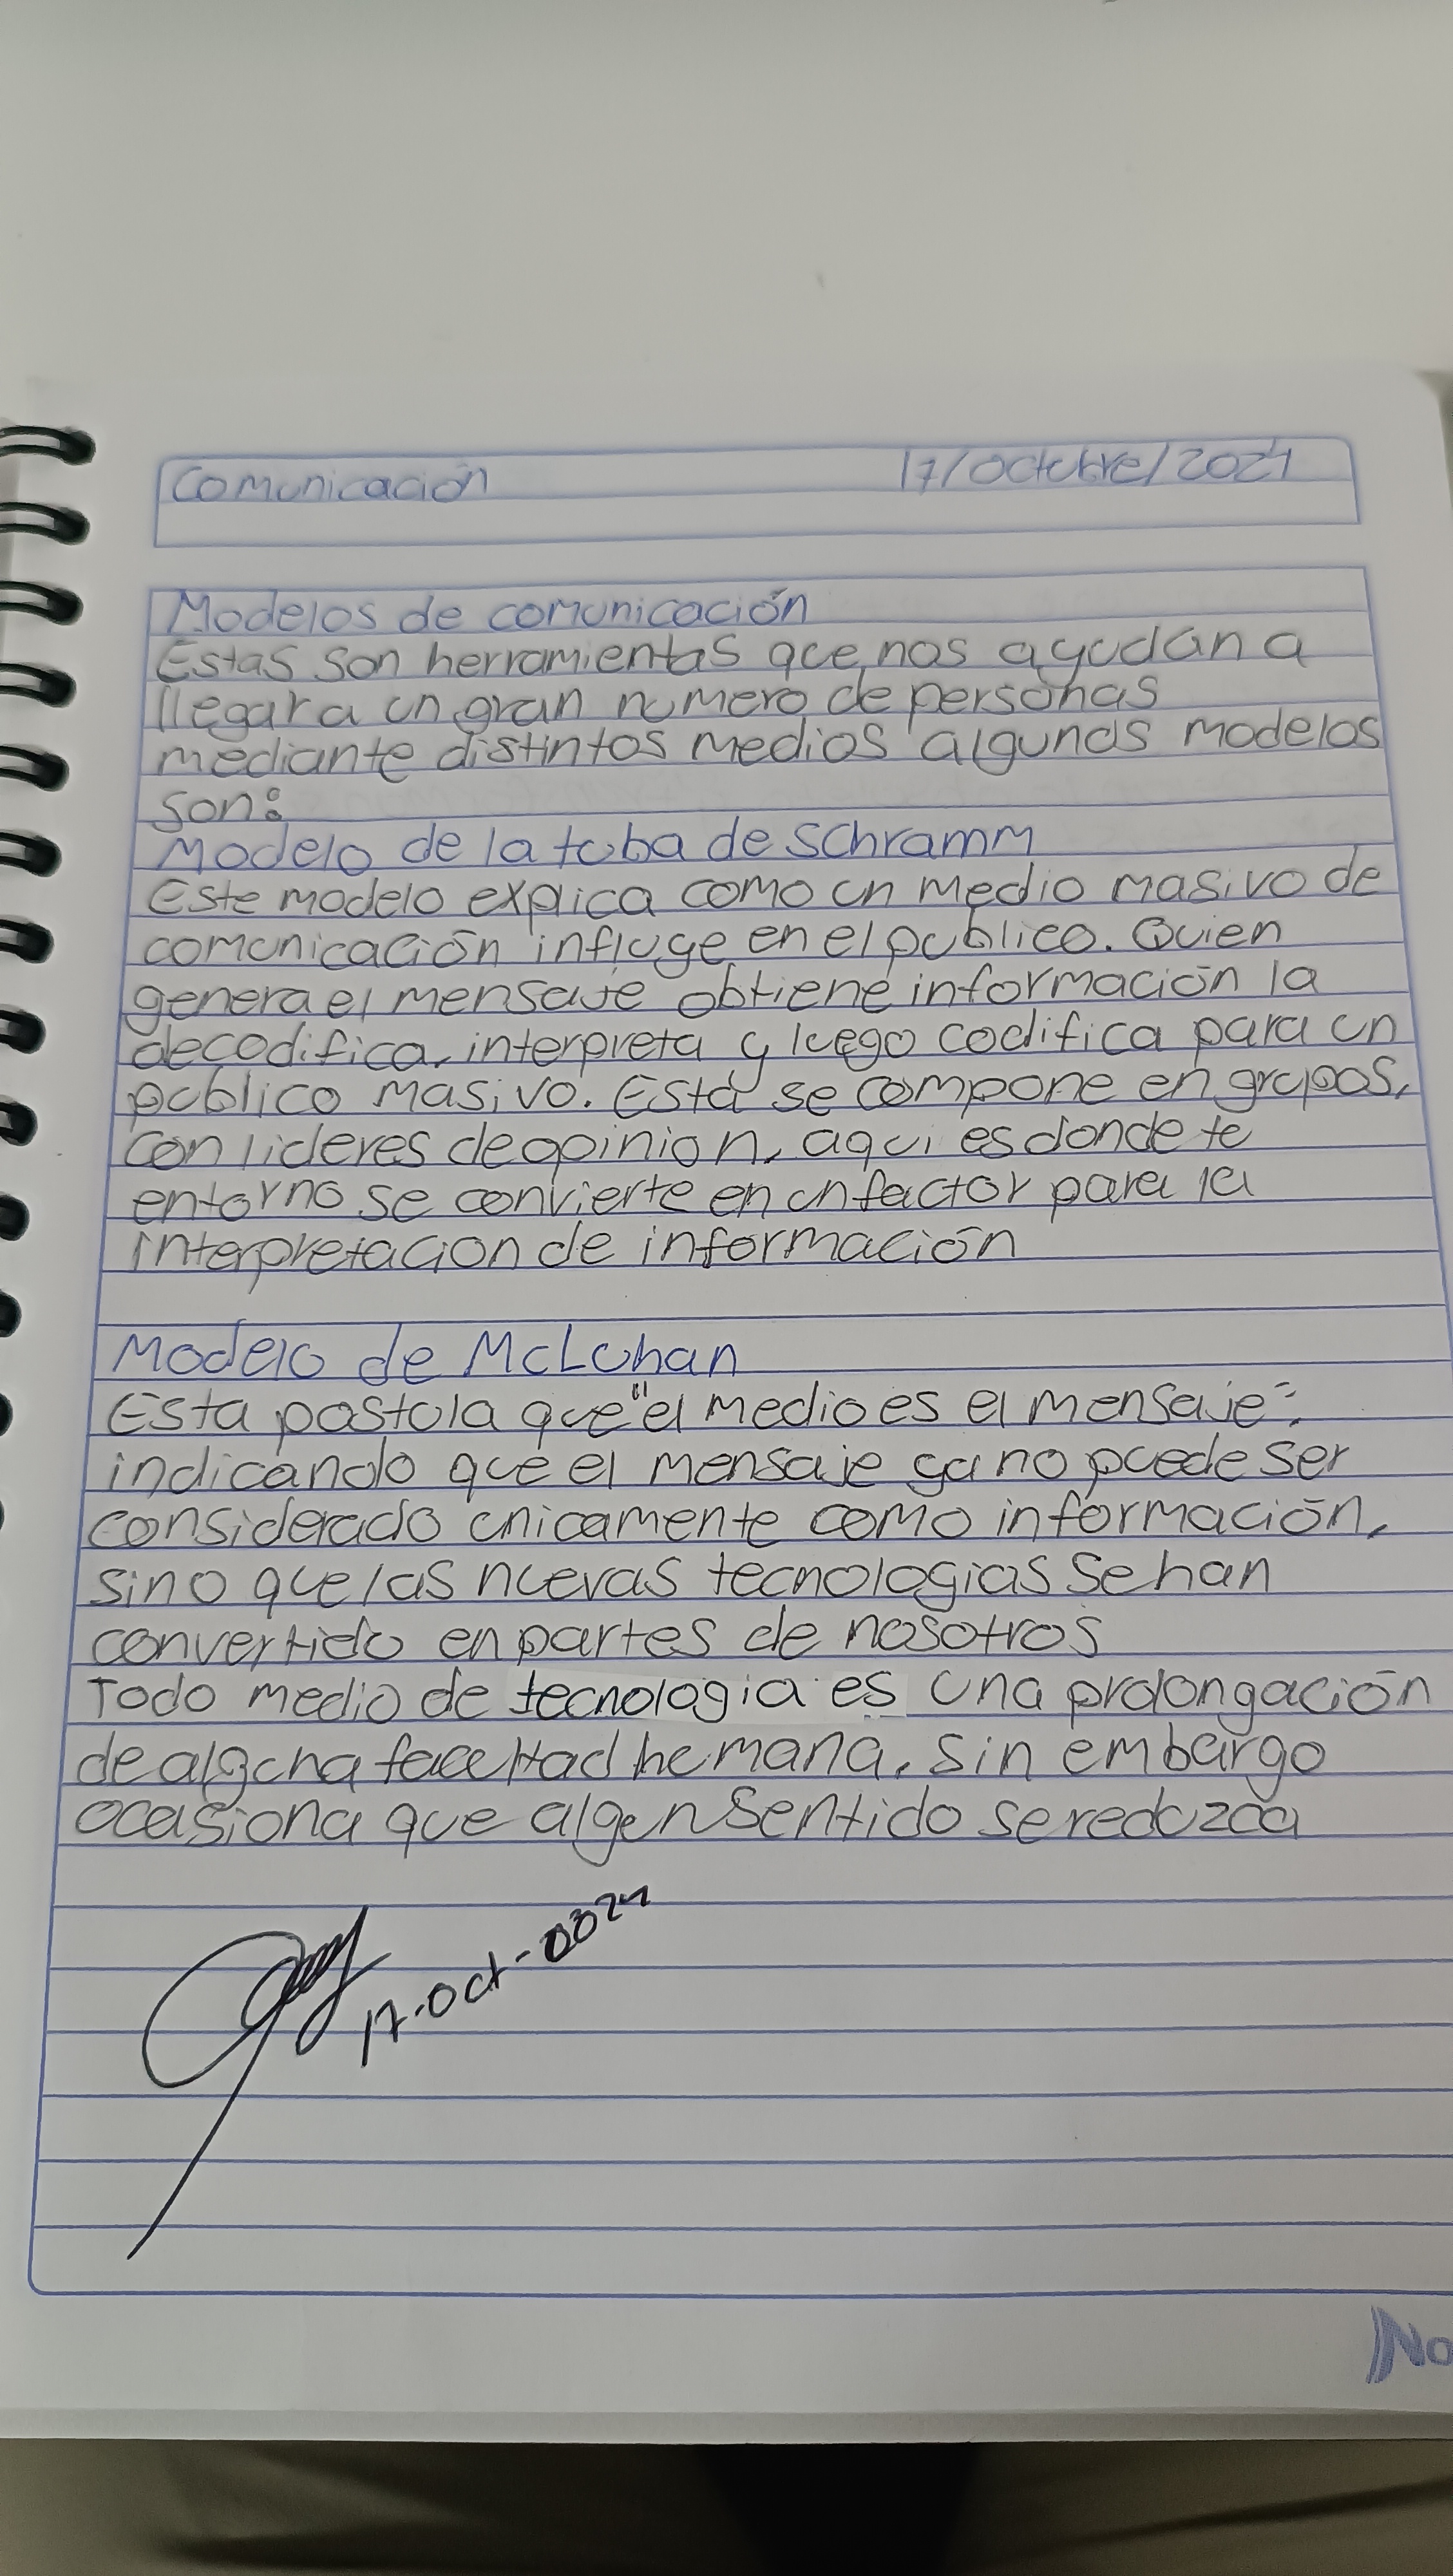 Comunicación 17/octubre/2024
Modelos de comunicación
Estas son herramientas que nos ayudan a
llegar a un gran numero de personas
mediante distintos medios algunos modelos
son:
Modelo de la tuba de schramm
Este modelo explica como un medio masivo de
comunicación influye en el publico. Quien
genera el mensaje obtiene información la
decodifica, interpreta y luego codifica para un
publico masivo. Esta se compone en grupos,
con lideres de opinion, aqui es donde te
entorno se convierte en un factor para la
interpretacion de información
Modelo de McLuhan
Esta postula que "el medio es el mensaje".
indicando que el mensaje ya no puede ser
considerado unicamente como información,
sino que las nuevas tecnologias se han
convertido en partes de nosotros
Todo medio de tecnologia es una prolongación
de alguna facultad humana, sin embargo
ocasiona que algun sentido se reduzca
17-Oct-2024
No